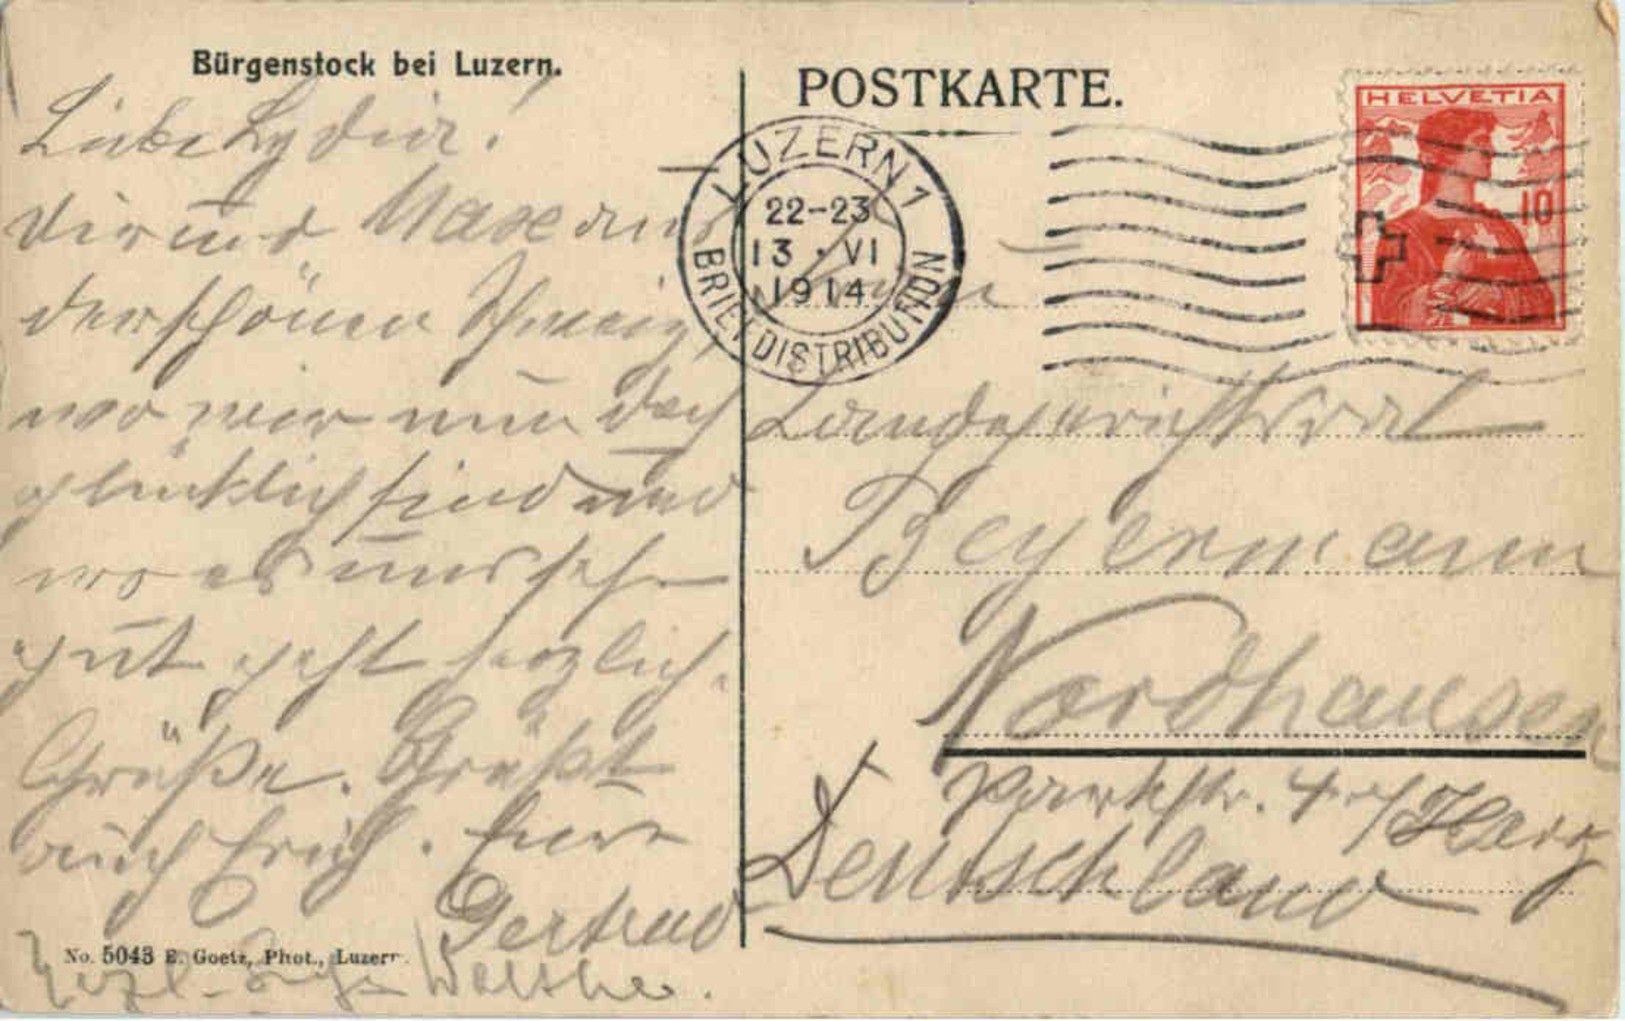 Bürgenstock bei Luzern.
Liebe Lydia!
Dir und Maxe aus
der schönen Schweiz,
wo wir nun doch
glücklich sind und
wo es uns sehr
gut geht herzlich.
Grüße. Grüßt
auch Erich. Eure
Gertrud
Walther.
No. 5043 E. Goetz, Phot., Luzern.
POSTKARTE.
HELVETIA
10
LUZERN 1
22-23
13 · VI
1914
BRIEFDISTRIBUTION
Landgerichtsrat
Beyermann
Nordhausen
Parkstr. a/Harz
Deutschland